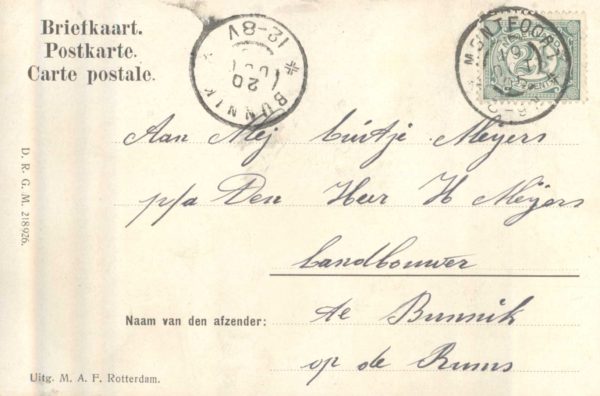 Briefkaart.
Postkarte.
Carte postale.
BUNNIK
12-8V
20
MONTFOORT
2½
CENT
Aan Mej Cuirtje Meyers
p/a Den Heer H Meijers
Landbouwer
Naam van den afzender: te Bunnik
op de
D. R. G. M. 218926.
Uitg. M. A. F. Rotterdam.